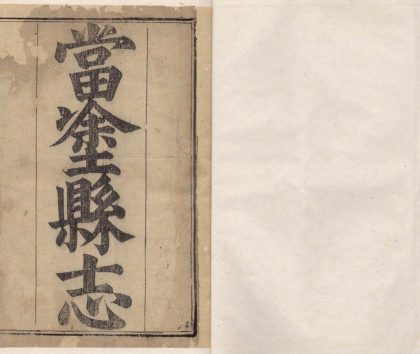 當塗縣志